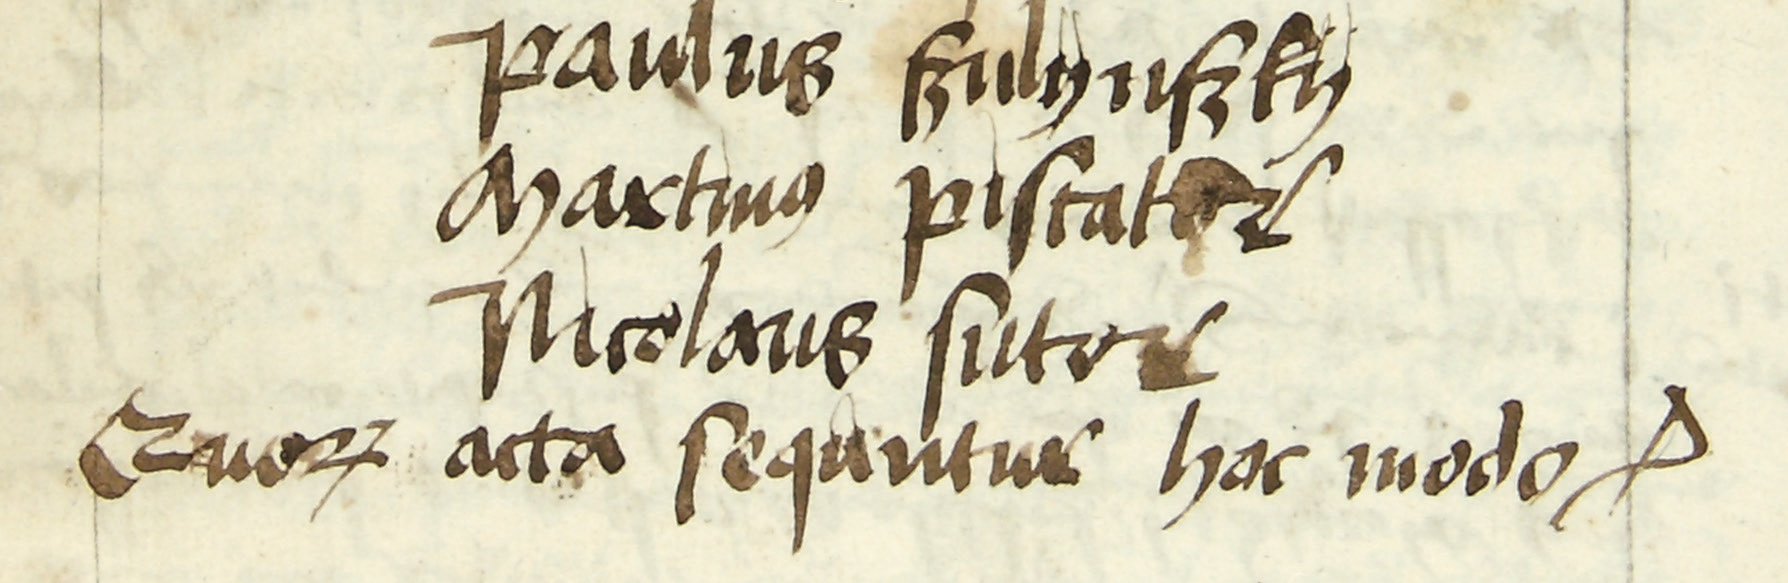 Paulus Szulynszky
Martinus piscator
Nicolaus sutor
Quorꝝ acta sequntur hoc modo